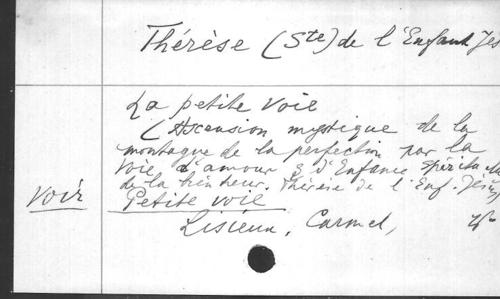 Thérèse (Ste) de l'Enfant Jés
La petite voie
(Ascension mystique de la
montagne de la perfection par la
voie d'amour & d'Enfance spirituelle
de la bienheur. Thérèse de l'Enf. Jésus
voir Petite voie
Lisieux, Carmel,